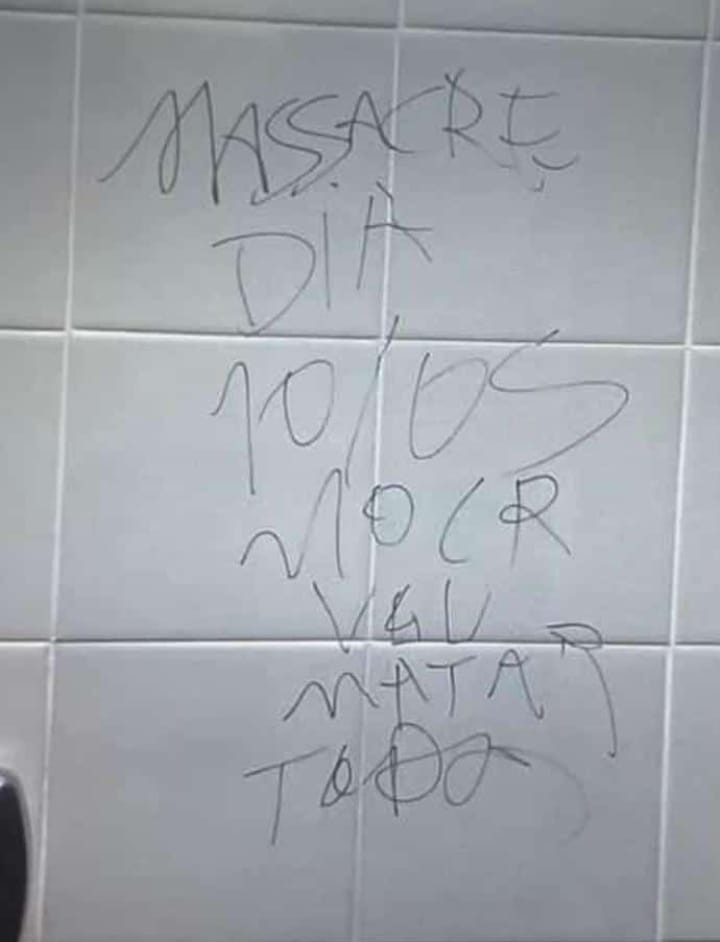 MASSACRE
DIA
10/05
VOU
MATAR
TODOS